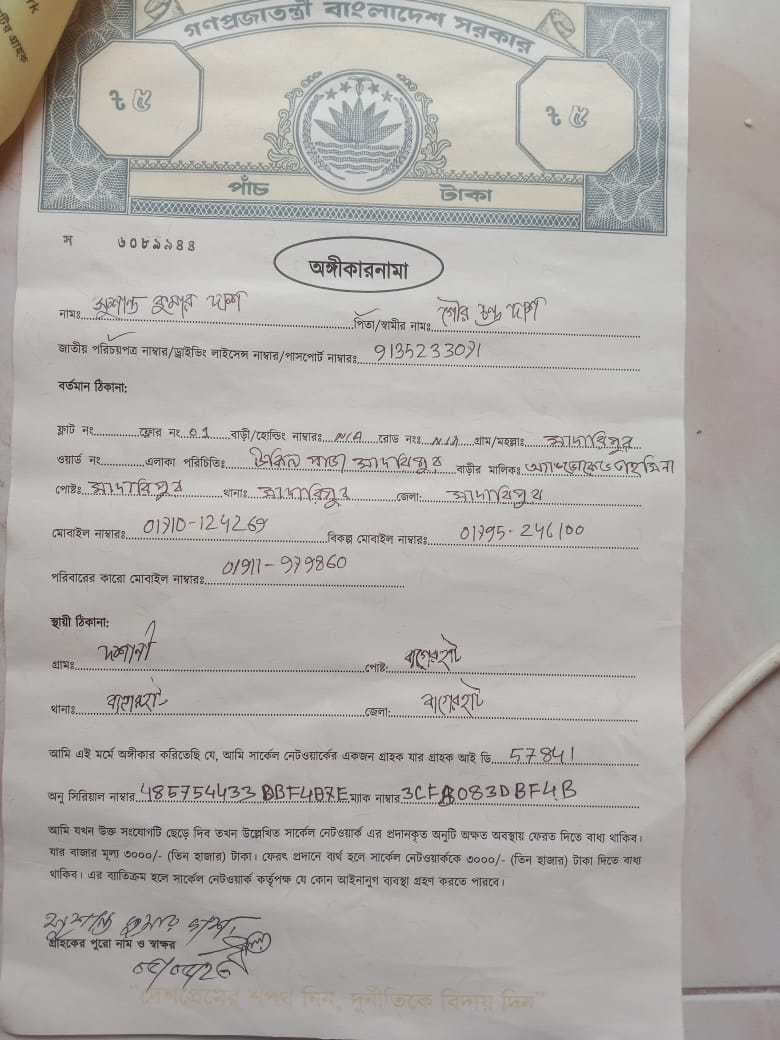 গণপ্রজাতন্ত্রী বাংলাদেশ সরকার
৳ ৫
৳ ৫
পাঁচ টাকা
স ৬০৮৯৯৪৪
অঙ্গীকারনামা
নামঃ সুশান্ত কুমার দাশ পিতা/স্বামীর নামঃ গৌর চন্দ্র দাশ
জাতীয় পরিচয়পত্র নাম্বার/ড্রাইভিং লাইসেন্স নাম্বার/পাসপোর্ট নাম্বারঃ 9135233091
বর্তমান ঠিকানা:
ফ্লাট নং ফ্লোর নং 01 বাড়ী/হোল্ডিং নাম্বারঃ N/A রোড নংঃ N/A গ্রাম/মহল্লাঃ মাদারিপুর
ওয়ার্ড নং এলাকা পরিচিতিঃ উকিল পাড়া মাদারিপুর বাড়ীর মালিকঃ অ্যাডভোকেট
পোষ্টঃ মাদারিপুর থানাঃ মাদারিপুর জেলা: মাদারিপুর
মোবাইল নাম্বারঃ 01710-124269 বিকল্প মোবাইল নাম্বারঃ 01795-246100
পরিবারের কারো মোবাইল নাম্বারঃ 01911-979860
স্থায়ী ঠিকানা:
গ্রামঃ দশানী পোষ্ট: বাগেরহাট
থানাঃ বাগেরহাট জেলা: বাগেরহাট
আমি এই মর্মে অঙ্গীকার করিতেছি যে, আমি সার্কেল নেটওয়ার্কের একজন গ্রাহক যার গ্রাহক আই ডি 57841
অনু সিরিয়াল নাম্বার 485754433BBF4B7E ম্যাক নাম্বার 3CFA083DBF4B
আমি যখন উক্ত সংযোগটি ছেড়ে দিব তখন উল্লেখিত সার্কেল নেটওয়ার্ক এর প্রদানকৃত অনুটি অক্ষত অবস্থায় ফেরত দিতে বাধ্য থাকিব।
যার বাজার মূল্য ৩০০০/- (তিন হাজার) টাকা। ফেরৎ প্রদানে ব্যর্থ হলে সার্কেল নেটওয়ার্ককে ৩০০০/- (তিন হাজার) টাকা দিতে বাধ্য
থাকিব। এর ব্যতিক্রম হলে সার্কেল নেটওয়ার্ক কর্তৃপক্ষ যে কোন আইনানুগ ব্যবস্থা গ্রহণ করতে পারবে।
সুশান্ত কুমার দাশ
গ্রাহকের পুরো নাম ও স্বাক্ষর
"দেশপ্রেমের শপথ নিন, দুর্নীতিকে বিদায় দিন"